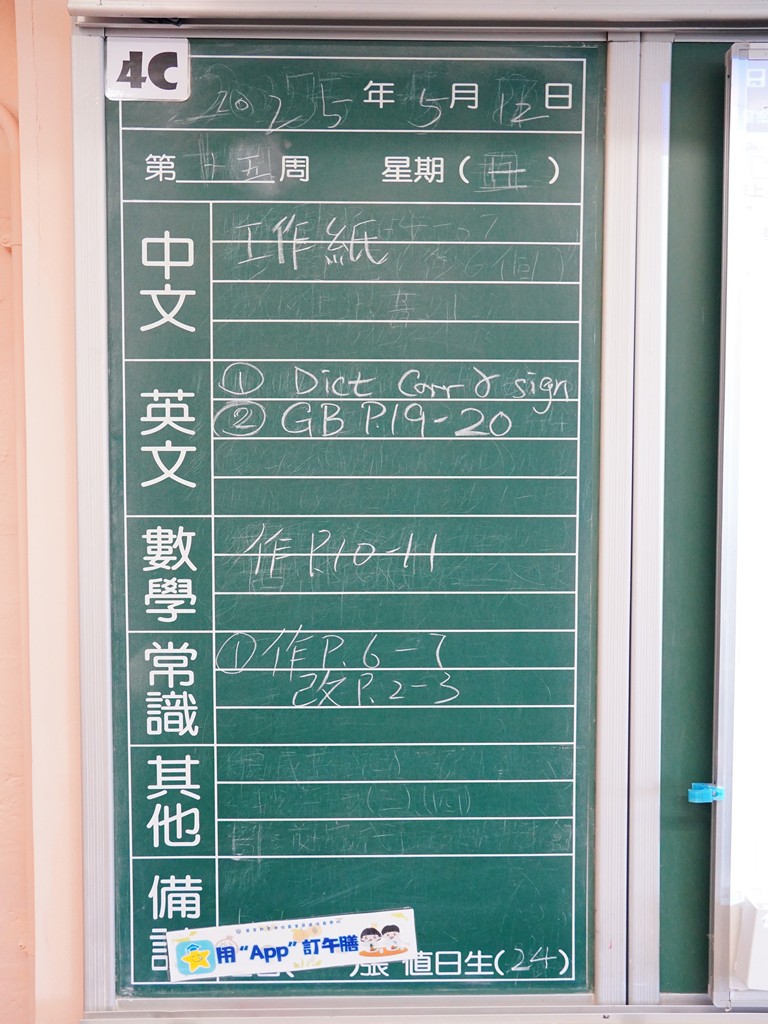 4C
2025年5月12日
第十五周 星期( )
中文
工作紙
英文
① Dict Corr & sign
② GB P.19-20
數學
作P.10-11
常識
① 作P.6-7
改P.2-3
其他
備
用“App”訂午膳
值日生(24)